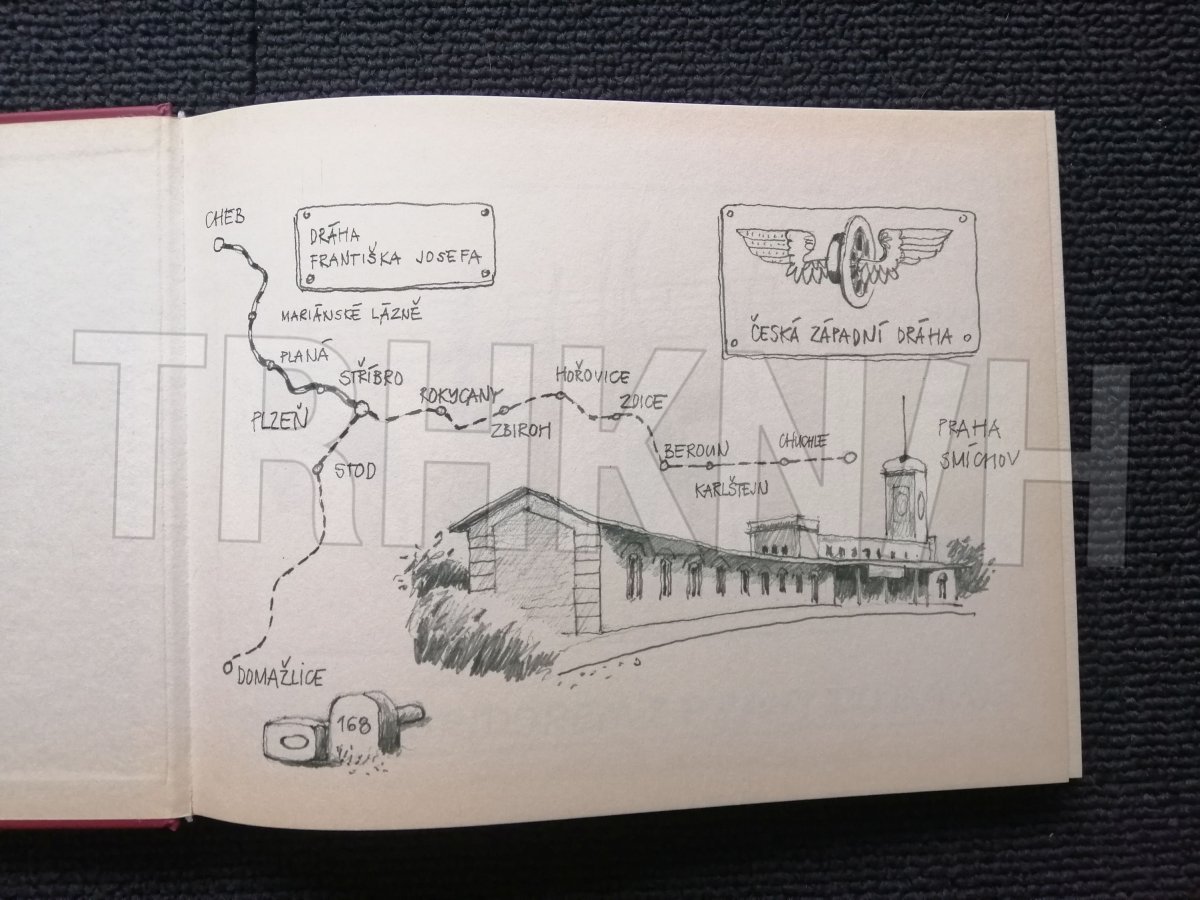 CHEB
DRÁHA
FRANTIŠKA JOSEFA
MARIÁNSKÉ LÁZNĚ
PLANÁ
STŘÍBRO
PLZEŇ
STOD
DOMAŽLICE
168
ROKYCANY
ZBIROH
HOŘOVICE
ZDICE
BEROUN
KARLŠTEJN
CHUCHLE
PRAHA
SMÍCHOV
ČESKÁ ZÁPADNÍ DRÁHA
TRHKNIH